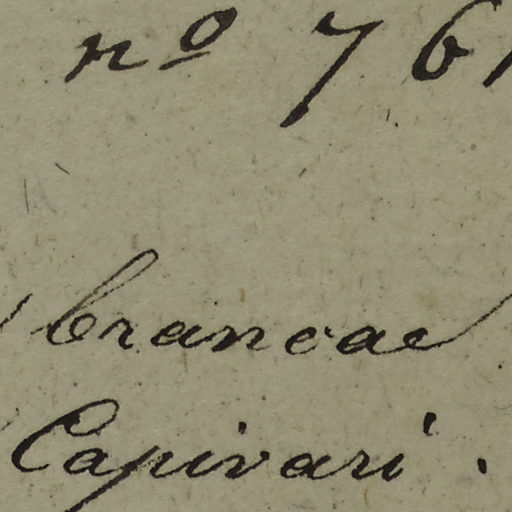 nº 761
brancae
Capivari.